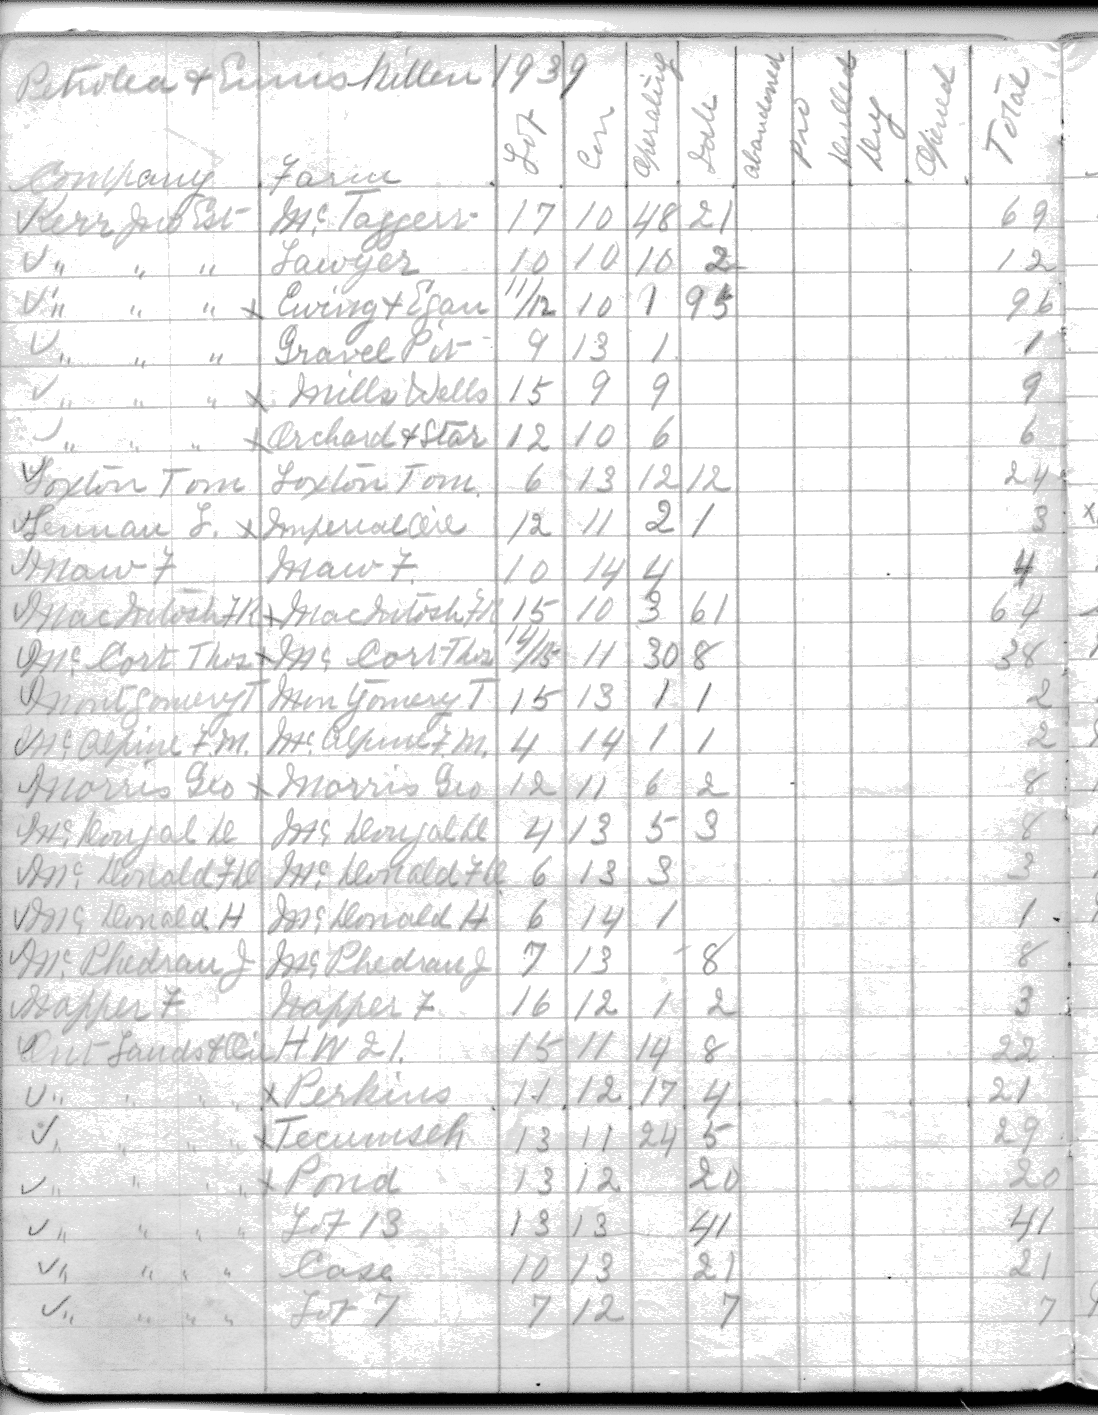 Petrolea & Enniskillen 1939
Company Farm Lot Con Operating Idle Abandoned Pro Drilled Dry Opened Total
Kerr Jno Est Mc Taggert 17 10 48 21 69
✓ " " " Sawyer 10 10 10 2 12
✓ " " " x Ewing & Egan 11/12 10 1 95 96
✓ " " " Gravel Pit 9 13 1 1
✓ " " " x Mills Wells 15 9 9 9
✓ " " " x Orchard & Star 12 10 6 6
✓ Loxton Tom Loxton Tom 6 13 12 12 24
✓ L. x Imperial Oil 12 11 2 1 3
✓ Maw F Maw F. 10 14 4 4
✓ MacIntosh FR x MacIntosh FR 15 10 3 61 64
✓ Mc Cort Thos x Mc Cort Thos 14/15 11 30 8 38
✓ Montgomery T Mongomery T 15 13 1 1 2
✓ Mc Alpine F. M. Mc Alpine F. M. 4 14 1 1 2
✓ Morris Geo x Morris Geo 12 11 6 2 8
✓ Mc Dougal D Mc Dougal D 4 13 5 3 8
✓ Mc Donald FD Mc Donald FD 6 13 3 3
✓ Mc Donald H Mc Donald H 6 14 1 1
✓ Mc Phedran J Mc Phedran J 7 13 8 8
✓ Happer F Happer F 16 12 1 2 3
✓ Ont Lands & Oil H W 21. 15 11 14 8 22
✓ " " " " x Perkins 11 12 17 4 21
✓ " " " " x Tecumseh 13 11 24 5 29
✓ " " " " x Pond 13 12 20 20
✓ " " " " Lot 13 13 13 41 41
✓ " " " " Case 10 13 21 21
✓ " " " " Lot 7 7 12 7 7